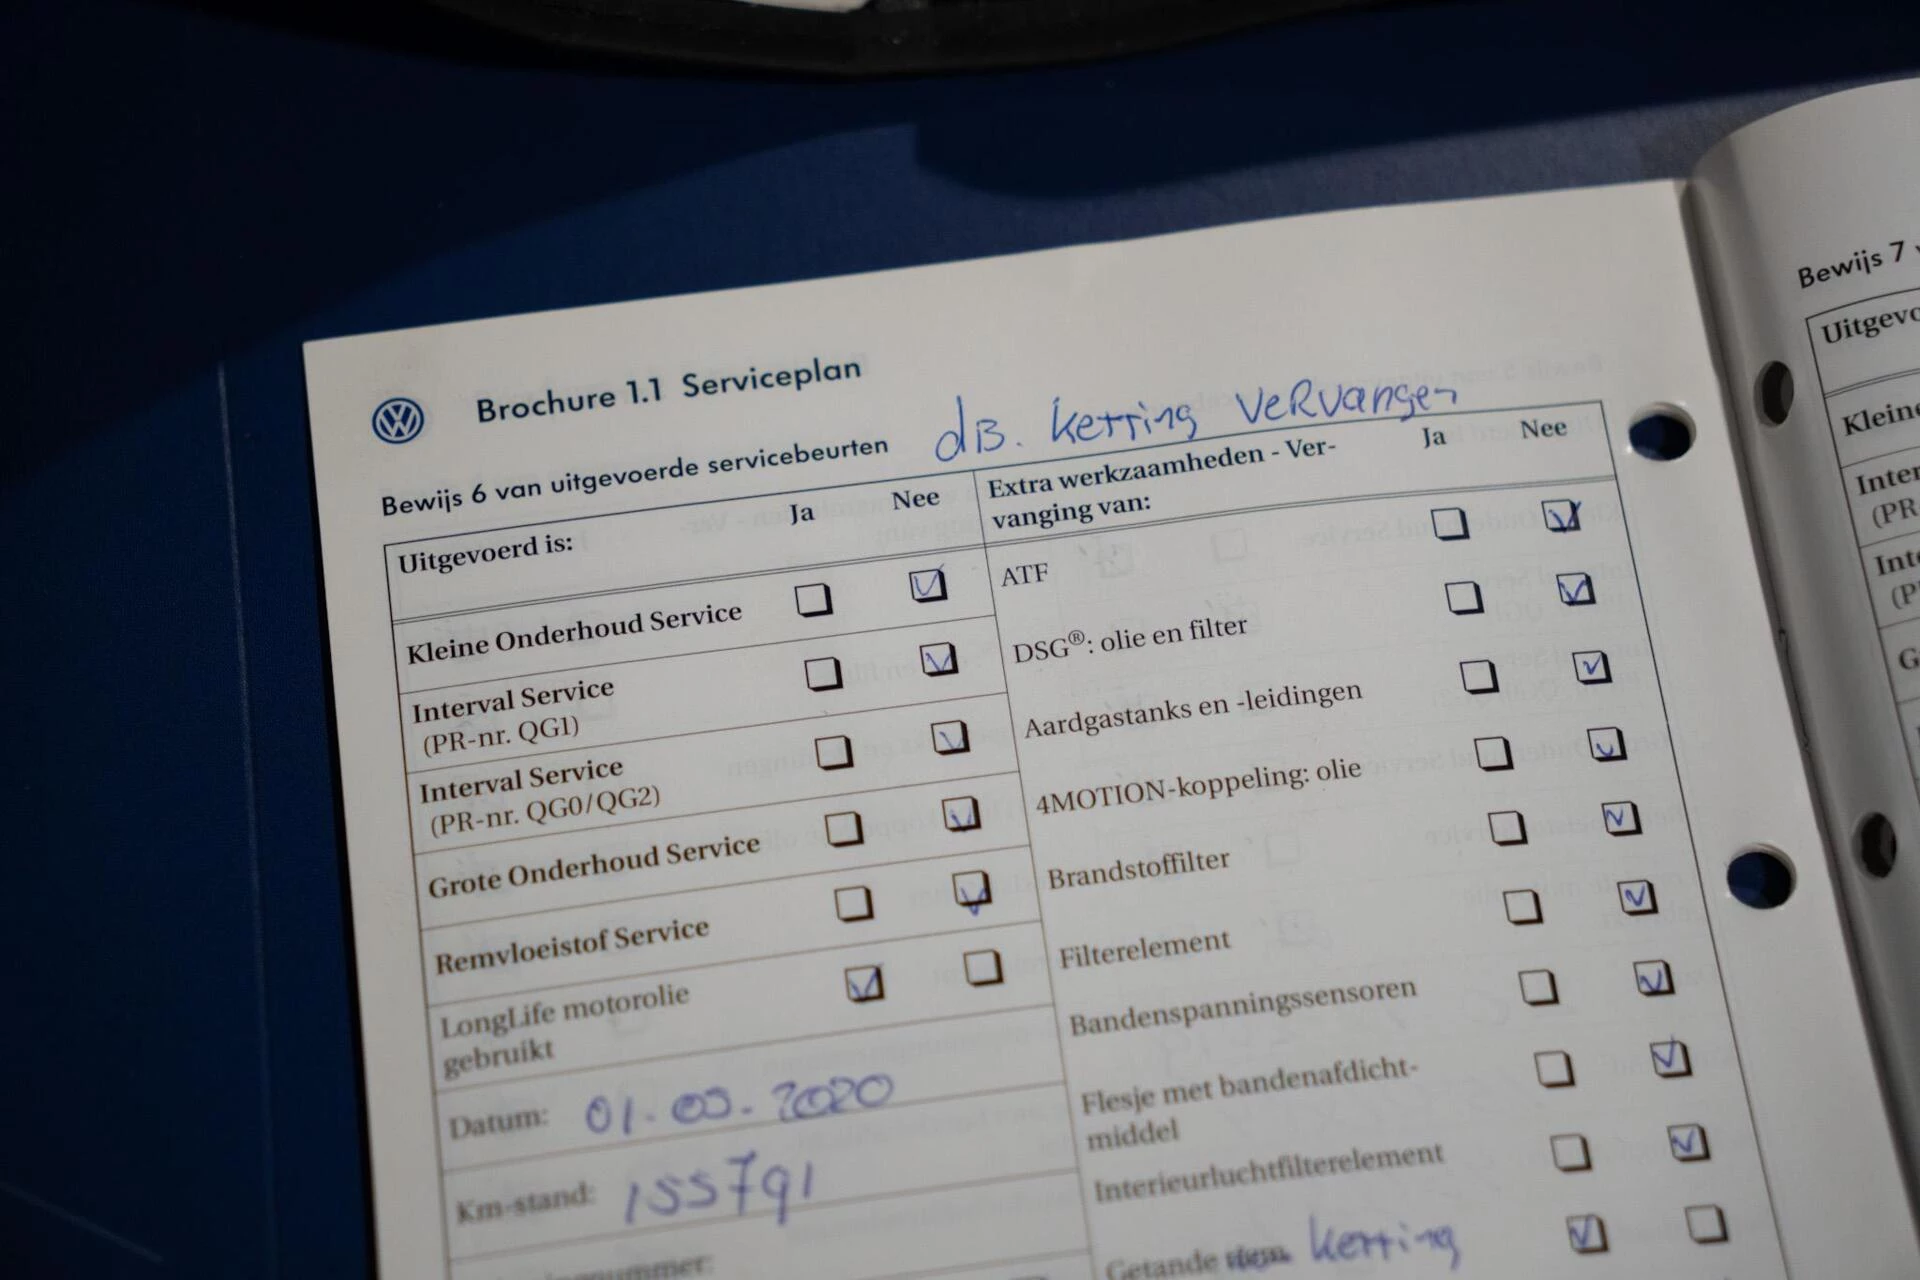 Brochure 1.1 Serviceplan
Bewijs 6 van uitgevoerde servicebeurten
dis. ketting vervangen
Uitgevoerd is: Ja Nee
Kleine Onderhoud Service
Interval Service
(PR-nr. QG1)
Interval Service
(PR-nr. QG0/QG2)
Grote Onderhoud Service
Remvloeistof Service
LongLife motorolie
gebruikt
Datum: 01.05.2020
Km-stand: 155791
Extra werkzaamheden - Ver-
vanging van: Ja Nee
ATF
DSG®: olie en filter
Aardgastanks en -leidingen
4MOTION-koppeling: olie
Brandstoffilter
Filterelement
Bandenspanningssensoren
Flesje met bandenafdicht-
middel
Interieurluchtfilterelement
Getande ketting
Bewijs 7
Uitgevo
Kleine
Inter
(PR
Inte
(P
G